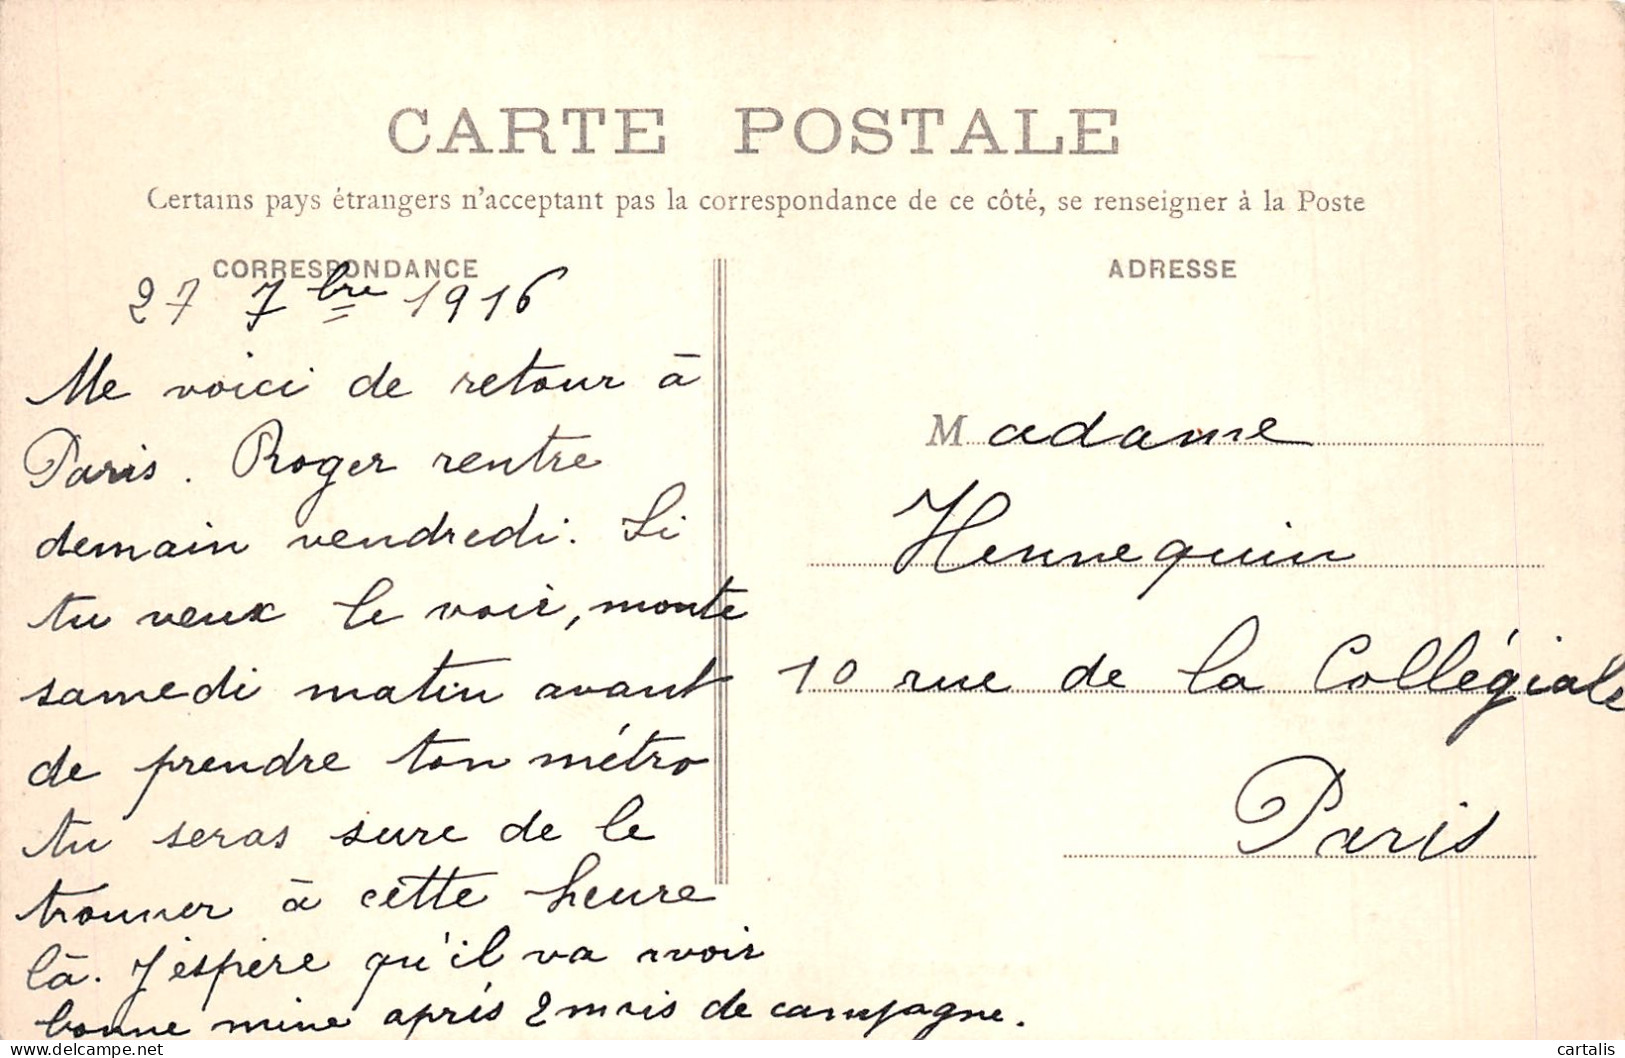 CARTE POSTALE
Certains pays étrangers n'acceptant pas la correspondance de ce côté, se renseigner à la Poste
CORRESPONDANCE
27 7bre 1916
Me voici de retour à
Paris. Roger rentre
demain vendredi. Si
tu veux le voir, monte
samedi matin avant
de prendre ton métro
tu seras sure de le
trouver à cette heure
là. J'espère qu'il va avoir
bonne mine après 2 mois de campagne.
ADRESSE
Madame
Hennequin
10 rue de la Collégiale
Paris
delcampe.net
cartalis